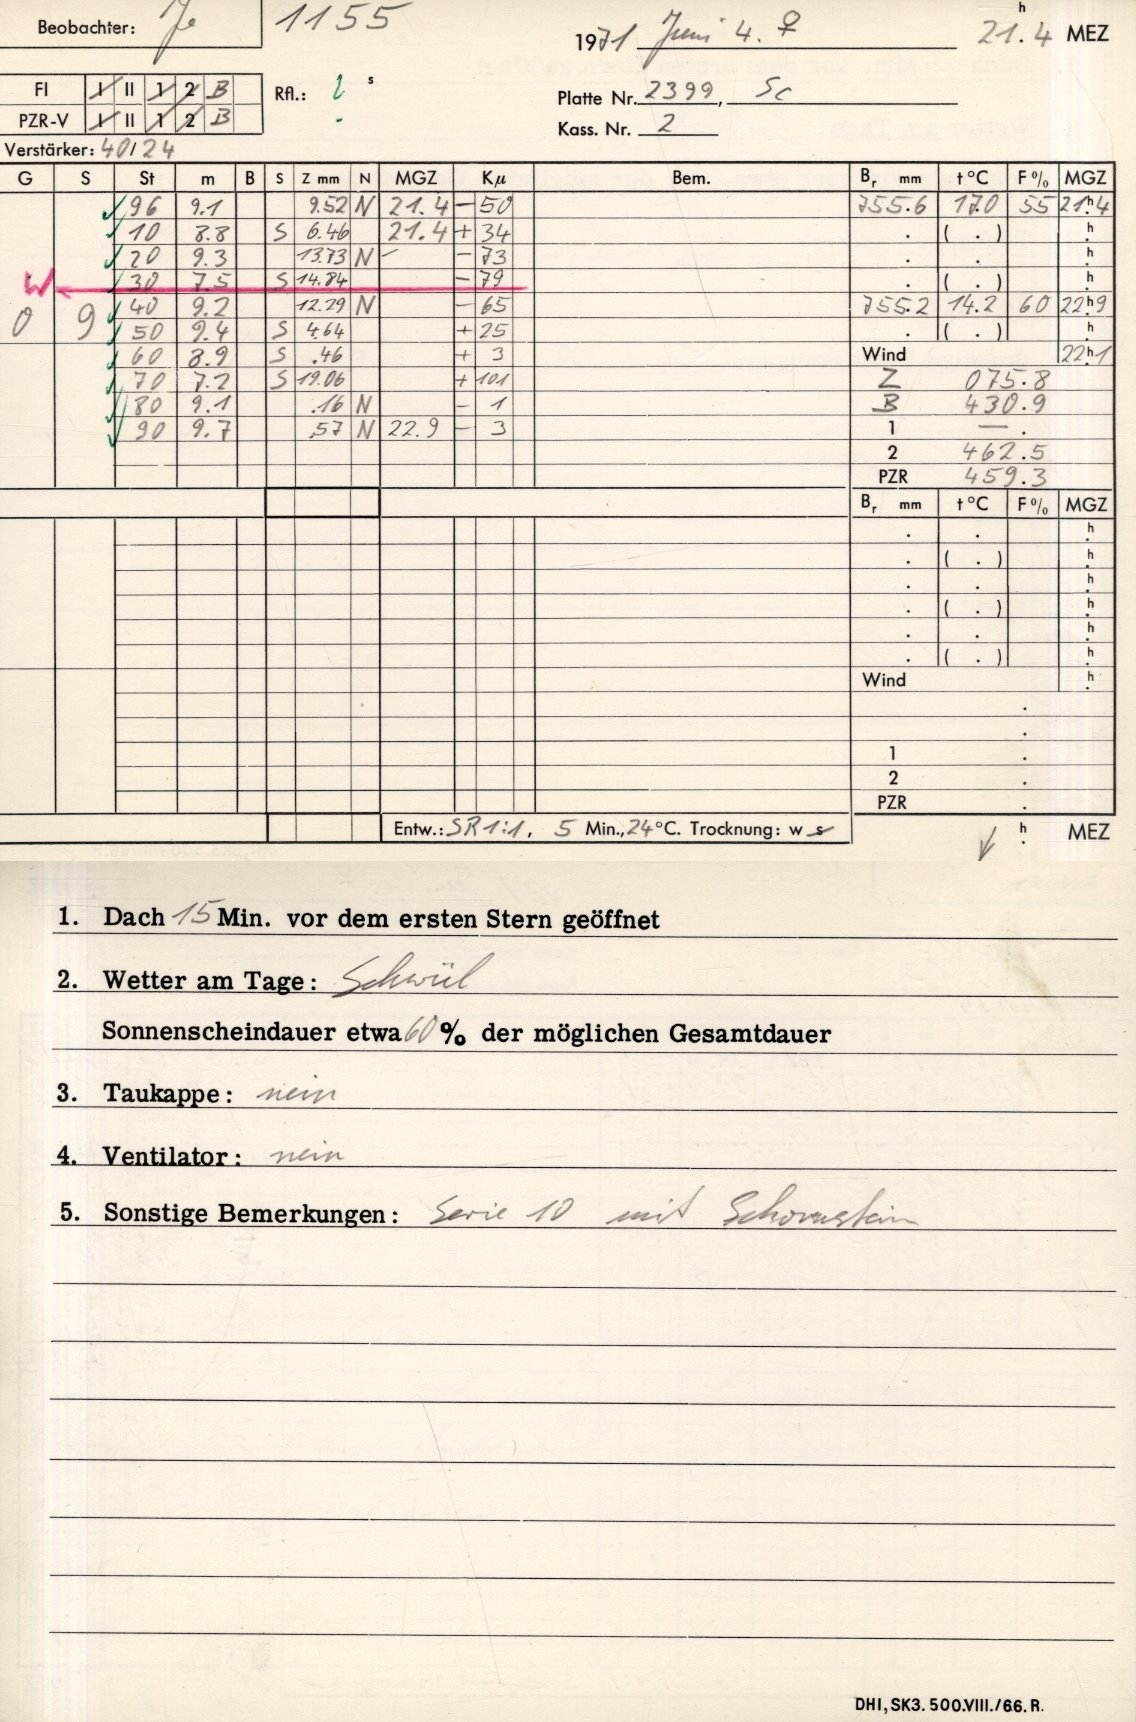 Beobachter: Je 1155
1971 Juni 4. ♀ 21.4 h MEZ
FI I II 1 2 B
Rfl.: s
PZR-V I II 1 2 B
Platte Nr. 2399, Sc
Kass. Nr. 2
Verstärker: 40/24
G S St m B S Z mm N MGZ Kµ Bem. Br mm t °C F % MGZ
96 9.1 9.52 N 21.4 - 50 755.6 17.0 55 21h4
10 8.8 S 6.46 21.4 + 34 . ( . ) h
20 9.3 13.73 N - 73 . . h
W 30 7.5 S 14.84 - 79 . ( . ) h
0 9 40 9.2 12.29 N - 65 755.2 14.2 60 22h9
50 9.4 S 4.64 + 25 . ( . ) h
60 8.9 S .46 + 3 Wind 22h1
70 7.2 S 19.06 + 101 Z 075.8
80 9.1 .16 N - 1 B 430.9
90 9.7 .57 N 22.9 - 3 1 — .
2 462.5
PZR 459.3
Br mm t °C F % MGZ
. . h
. ( . ) h
. . h
. ( . ) h
. . h
. ( . ) h
Wind h
.
.
1 .
2 .
PZR .
Entw.: SR 1:1, 5 Min., 24 °C. Trocknung: w s h MEZ
1. Dach 15 Min. vor dem ersten Stern geöffnet
2. Wetter am Tage: Schwül
Sonnenscheindauer etwa 60 % der möglichen Gesamtdauer
3. Taukappe: nein
4. Ventilator: nein
5. Sonstige Bemerkungen: Serie 10 mit Schornstein
DHI, SK3. 500.VIII./66. R.